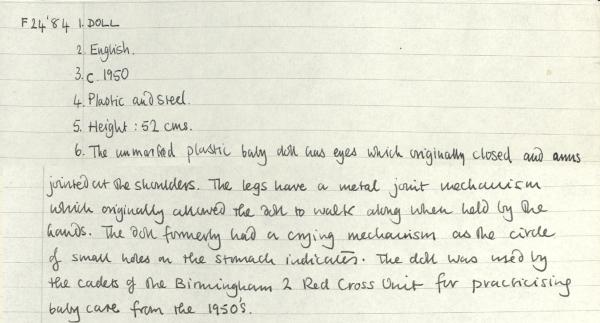 F24'84 1. DOLL
2. English.
3. c. 1950
4. Plastic and Steel.
5. Height : 52 cms.
6. The unmarked plastic baby doll has eyes which originally closed and arms
jointed at the shoulders. The legs have a metal joint mechanism
which originally allowed the doll to walk along when held by the
hands. The doll formerly had a crying mechanism as the circle
of small holes on the stomach indicates. The doll was used by
the cadets of the Birmingham 2 Red Cross Unit for practicising
baby care from the 1950's.